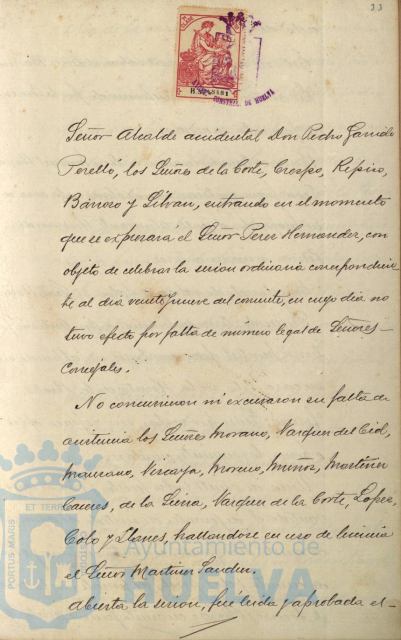 33
CONSTNAL. DE HUELVA
Señor Alcalde accidental Don Pedro Garrido
Perelló, los Señores de la Corte, Crespo, Repiso,
Barroso y Silvan, entrando en el momento
que se expresará el Señor Perez Hernandez, con
objeto de celebrar la sesion ordinaria correspondien-
te al dia veintinueve del corriente, en cuyo dia no
tuvo efecto por falta de número legal de Señores
Concejales.
No concurrieron ni excusaron su falta de
asistencia los Señores Morano, Vazquez del Cid,
Manzano, Vizcaya, Moreno, Muñoz, Martinez
de la Sierra, Vazquez de la Corte, Lopez,
y Llanes, hallandose en uso de licencia
el Señor Martinez Sanchez.
Abierta la sesion, fué leida y aprobada el
PORTUS MARIS ET TERRE
Ayuntamiento de
HUELVA